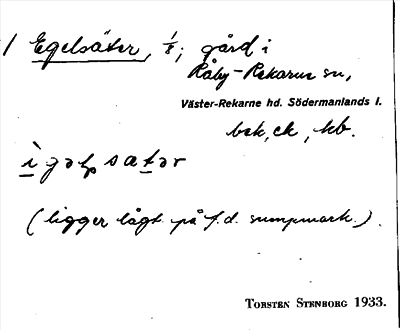 / Egelsäter, 1/8; gård i
Råby-Rekarne sn,
Väster-Rekarne hd. Södermanlands l.
bsk, ek, kb.
(ligger lågt på f.d. sumpmark.).
TORSTEN STENBORG 1933.